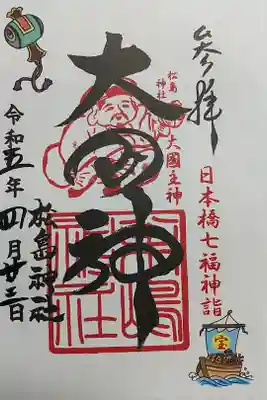 奉拝
日本橋七福神詣
松島神社
大國主神
大黒神
松島神社
松島神社
令和五年四月廿三日
宝